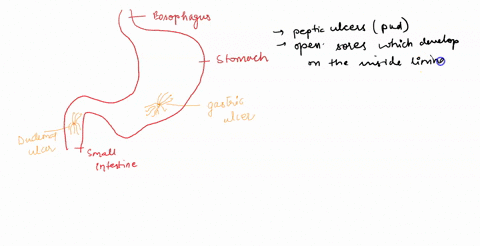 Eosophagus
Stomach
gastric
ulcer
Duodenal
ulcer
Small
intestine
→ peptic ulcers (pud)
→ open sores which develop
on the inside lining